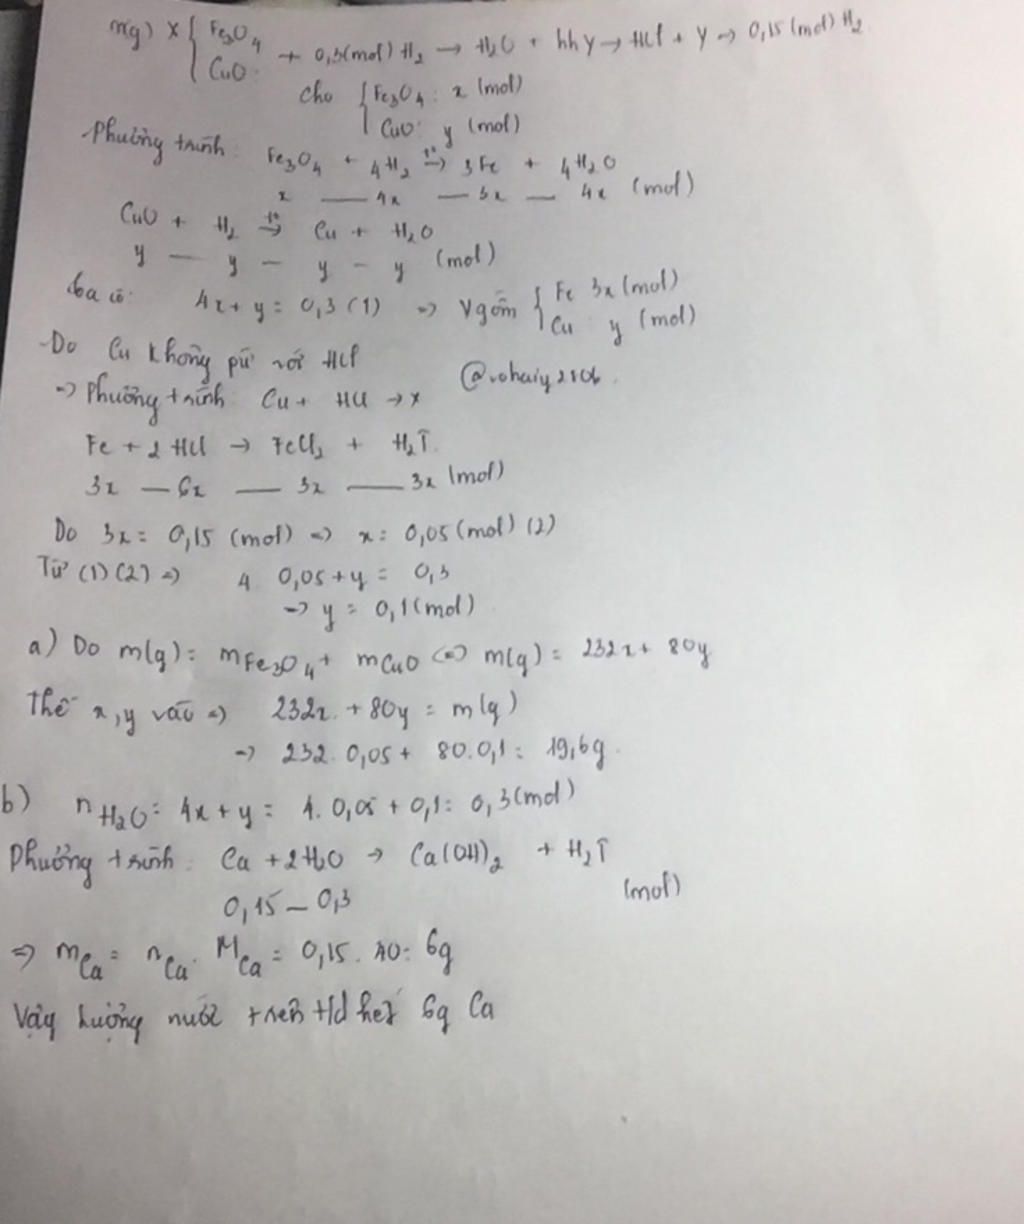 m(g) X { Fe3O4 CuO + 0,3(mol) H2 → H2O + hh y → HCl + y → 0,15 (mol) H2
cho { Fe3O4: x (mol)
CuO: y (mol)
Phương trình: Fe3O4 + 4H2 →t° 3Fe + 4H2O
x — 4x — 3x — 4x (mol)
CuO + H2 →t° Cu + H2O
y — y — y — y (mol)
Ta có: 4x + y = 0,3 (1) => Y gồm { Fe 3x (mol)
Cu y (mol)
Do Cu không pứ với HCl
=> Phương trình: Cu + HCl → x
Fe + 2HCl → FeCl2 + H2↑
3x — 6x — 3x — 3x (mol)
Do 3x = 0,15 (mol) => x = 0,05 (mol) (2)
Từ (1) (2) => 4. 0,05 + y = 0,3
=> y = 0,1 (mol)
a) Do m(g) = mFe3O4 + mCuO <=> m(g) = 232x + 80y
Thế x, y vào => 232x + 80y = m(g)
=> 232. 0,05 + 80. 0,1 = 19,6g.
b) nH2O = 4x + y = 4. 0,05 + 0,1 = 0,3 (mol)
Phương trình: Ca + 2H2O → Ca(OH)2 + H2↑
0,15 — 0,3 (mol)
=> mCa = nCa. MCa = 0,15. 40 = 6g
Vậy lượng nước trên t/d hết 6g Ca